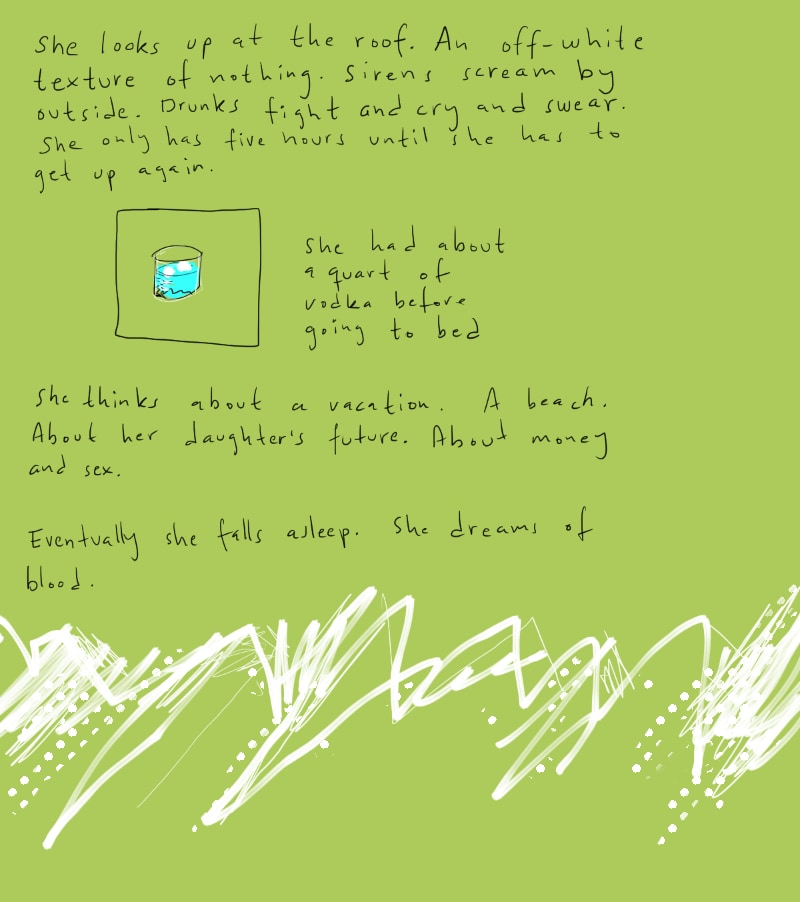 She looks up at the roof. An off-white
texture of nothing. Sirens scream by
outside. Drunks fight and cry and swear.
She only has five hours until she has to
get up again.
She had about
a quart of
vodka before
going to bed
She thinks about a vacation. A beach.
About her daughter's future. About money
and sex.
Eventually she falls asleep. She dreams of
blood.